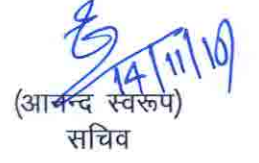 14/11/19
(आनन्द स्वरूप)
सचिव